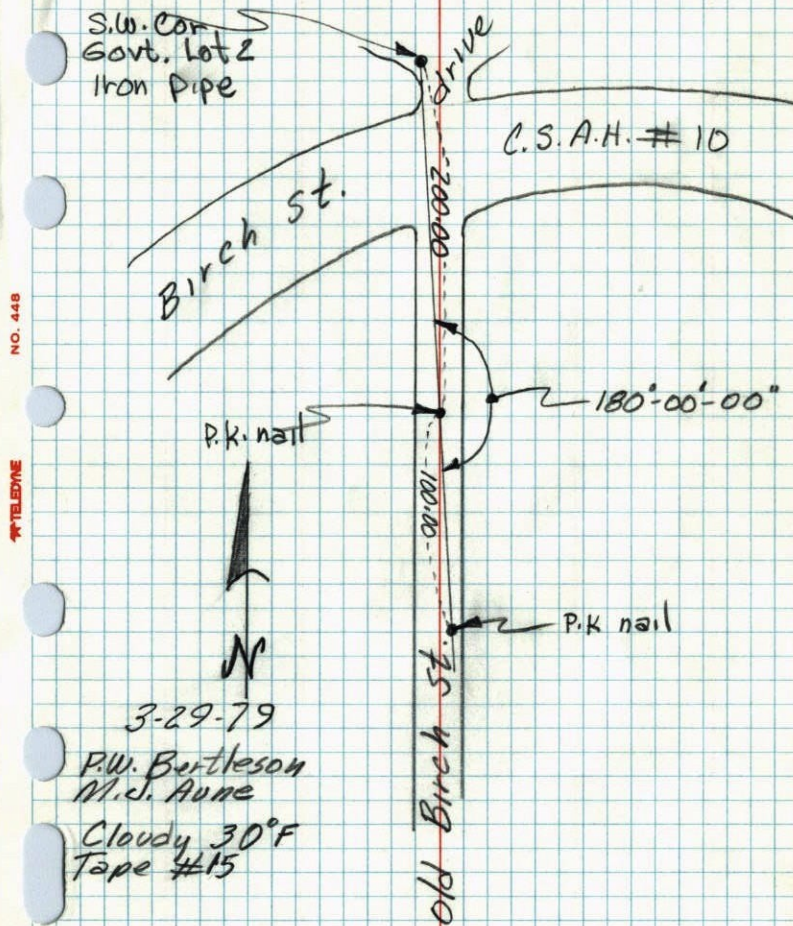 S.W. Cor
Govt. Lot 2
Iron Pipe
drive
C.S.A.H. # 10
Birch St.
200.00
180°-00'-00"
P.K. nail
100.00
P.K nail
N
3-29-79
P.W. Bertleson
M.J. Aune
Cloudy 30°F
Tape #15
Old Birch St.
NO. 448
TELEDYNE